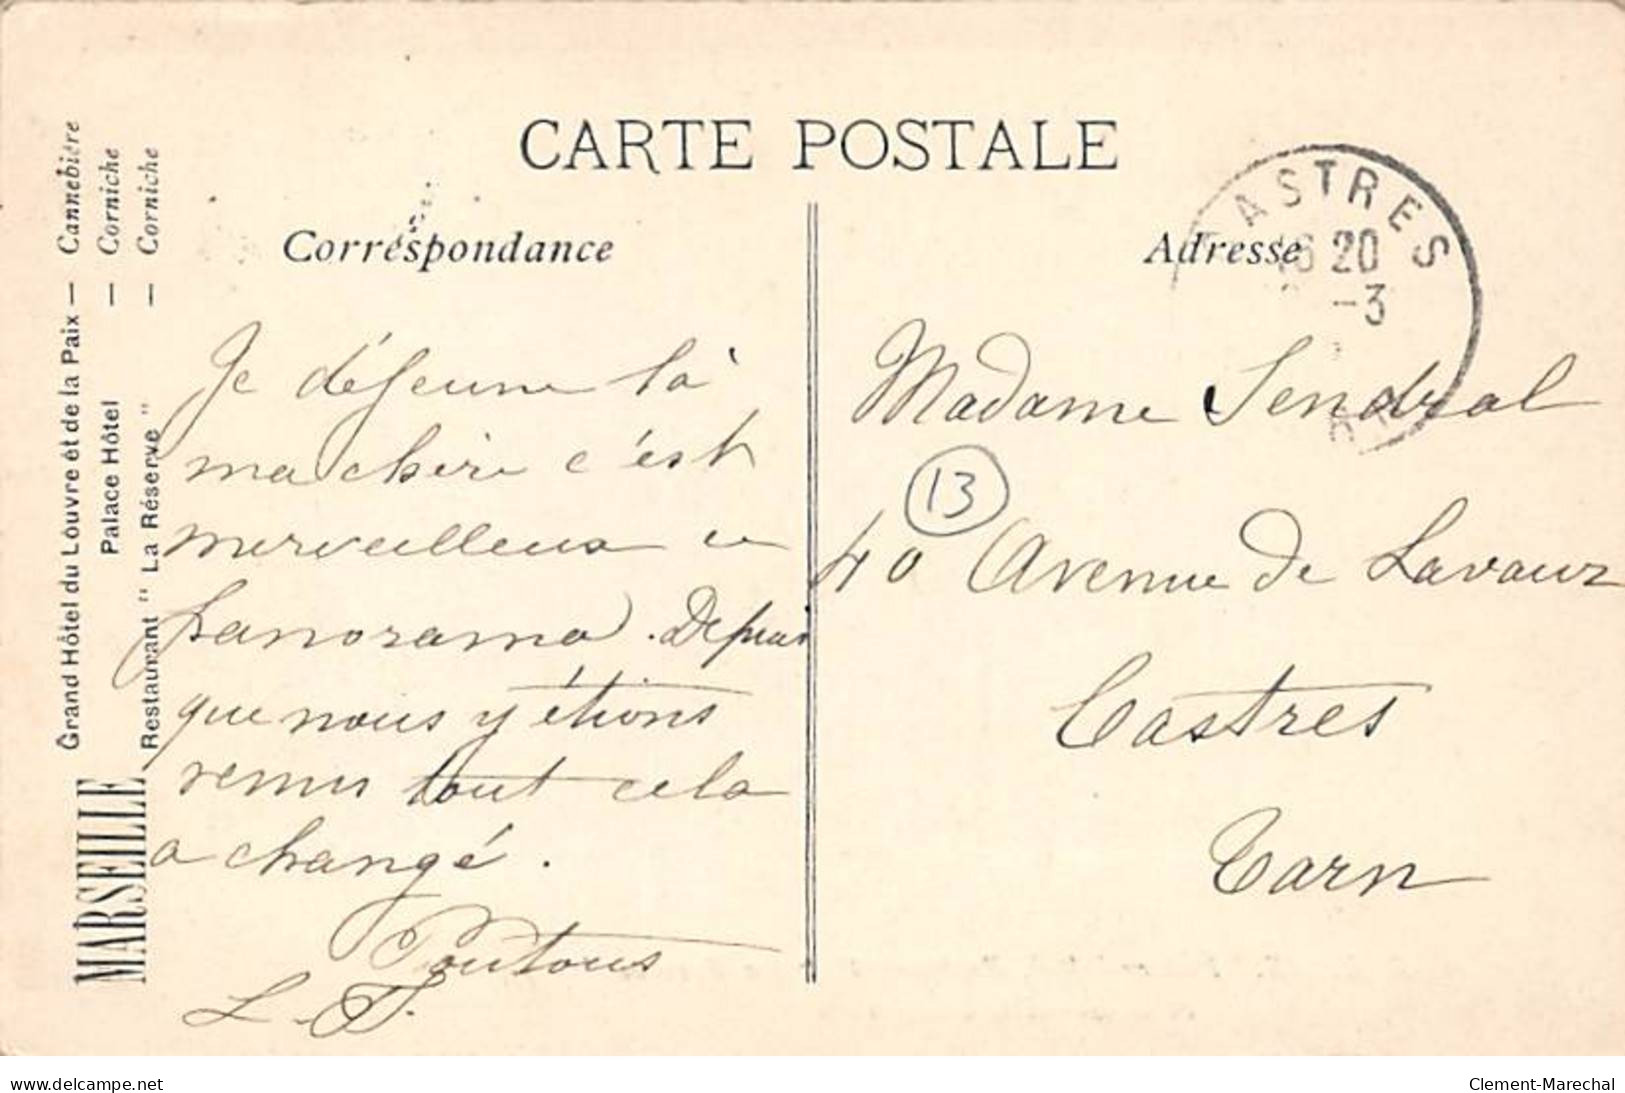 CARTE POSTALE
Correspondance
Adresse
CASTRES
16 20
-3
MARSEILLE
Grand Hôtel du Louvre et de la Paix — Cannebière
Palace Hôtel — Corniche
Restaurant " La Réserve " — Corniche
Je déjeune là
ma chérie c'est
merveilleux en
panorama. Depuis
que nous y étions
venus tout cela
a changé.
Poutous
L. S.
Madame Sendral
13
40 Avenue de Lavaur
Castres
Tarn
delcampe.net
Clement-Marechal